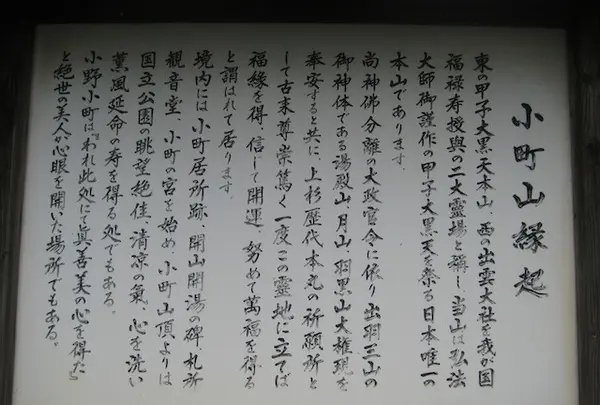 小町山縁起
東の甲子大黒天本山、西の出雲大社を我が国
福禄寿授與の二大霊場と稱し、当山は弘法
大師御謹作の甲子大黒天を祭る日本唯一の
本山であります。
尚神佛分離の大政官令に依り出羽三山の
御神体である湯殿山、月山、羽黒山大権現を
奉安すると共に、上杉歴代本丸の祈願所と
して古来尊崇篤く一度この霊地に立てば
福縁を得、信じて開運、努めて萬福を得る
と謂はれて居ります。
境内には、小町居所跡、開山開湯の碑、札所
観音堂、小町の宮を始め、小町山頂よりは
国立公園の眺望絶佳、清凉の氣、心を洗い
薫風延命の寿を得る処でもある。
小野小町は『われ此処にて眞善美の心を得た』
と絶世の美人が心眼を開いた場所でもある。